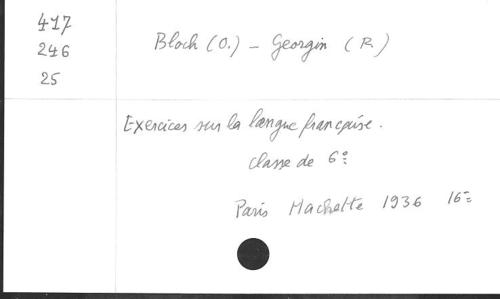 417
246
25
Bloch (O.) - Georgin (R.)
Exercices sur la langue française.
Classe de 6e
Paris Hachette 1936 16=